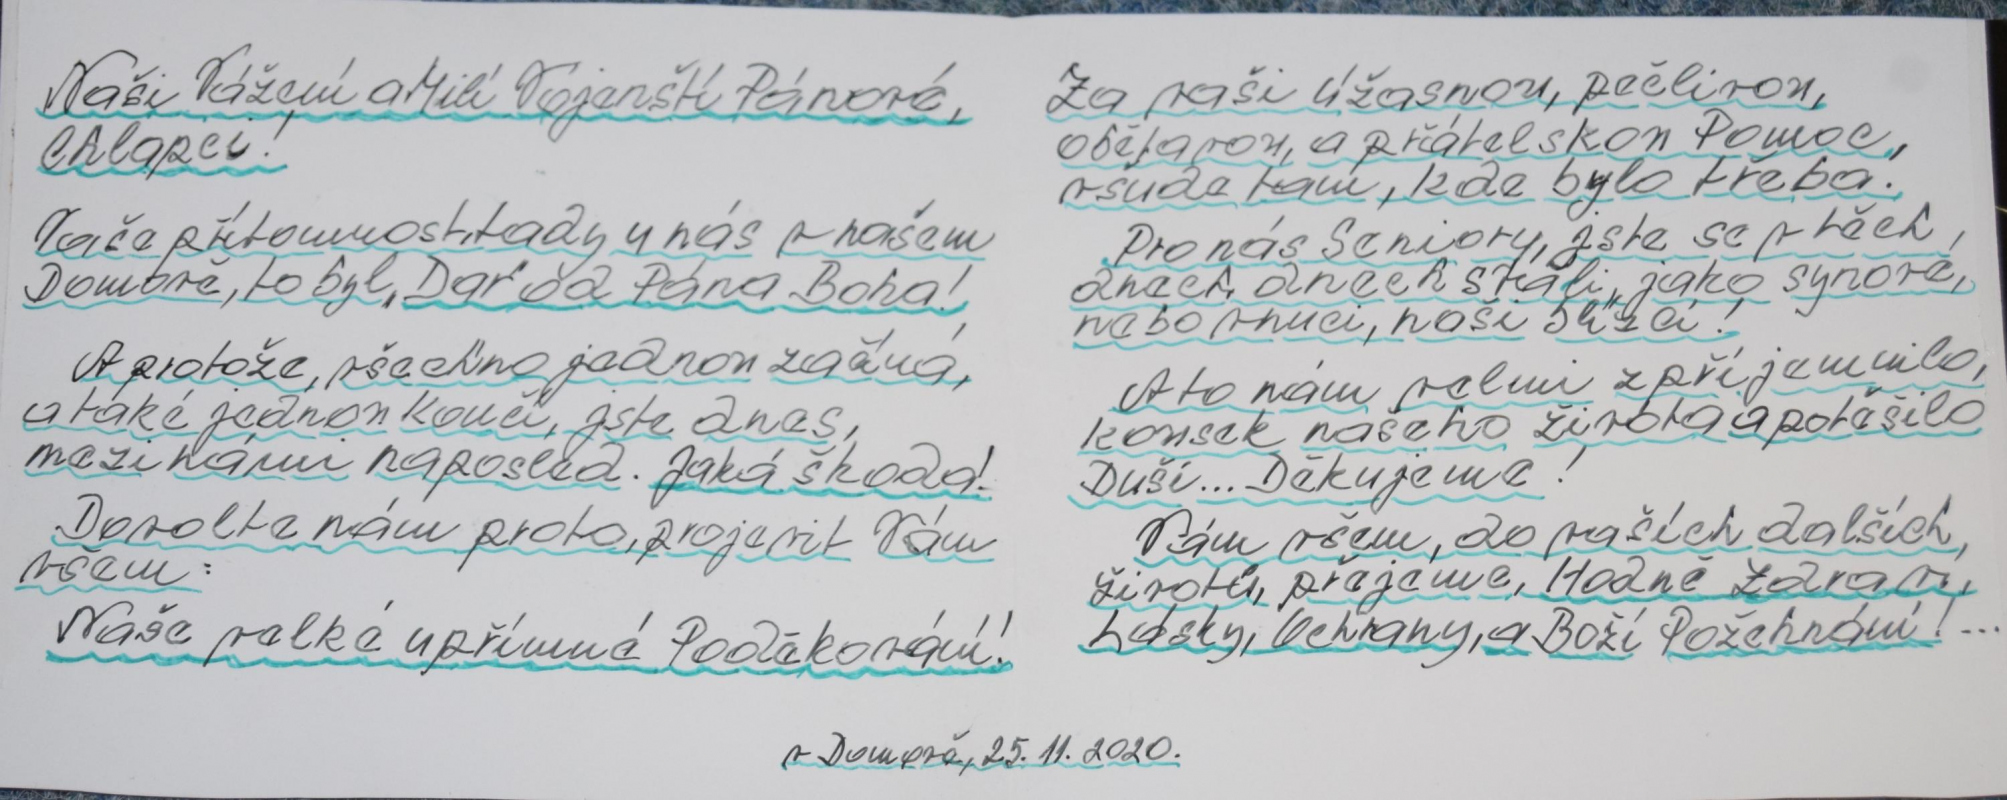 Naši Vážení a Milí Vojenští Pánové,
Chlapci!
Vaše přítomnost, tady u nás v našem
Domově, to byl, Dar od Pána Boha!
A protože, všechno jednou začíná,
a také jednou končí, jste dnes,
mezi námi naposled. Jaká škoda!
Dovolte nám proto, projevit Vám
všem:
Naše velké upřímné Poděkování!
Za vaši úžasnou, pečlivou,
obětavou, a přátelskou Pomoc,
všude tam, kde bylo třeba.
Pro nás Seniory, jste se v těch,
dnech, dnech stali, jako synové,
nebo vnuci, naši blízcí!
A to nám velmi zpříjemnilo,
kousek našeho života a potěšilo
Duši... Děkujeme!
Vám všem, do vašich dalších,
životů, přejeme, Hodně Zdraví,
Lásky, Ochrany, a Boží Požehnání!...
v Domově, 25. 11. 2020.